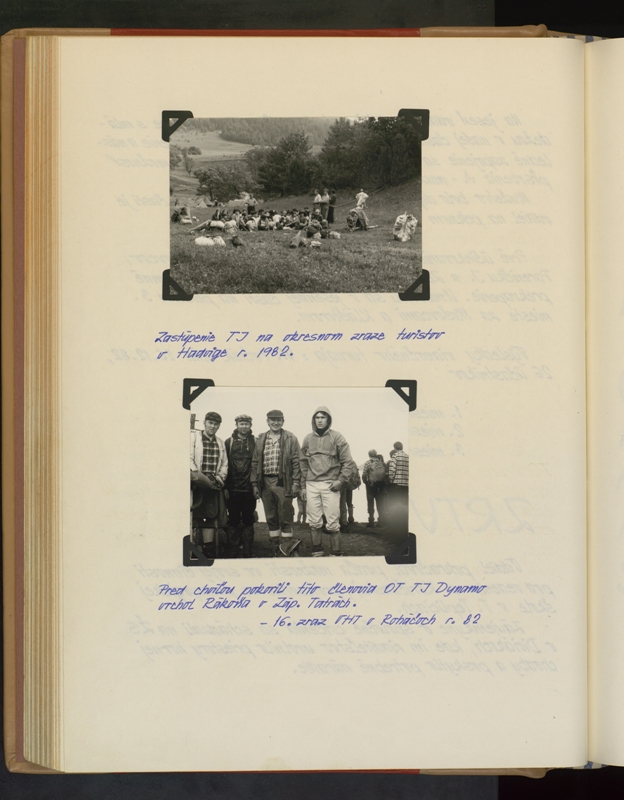 Zastúpenie TJ na okresnom zraze turistov
v Hadvige r. 1982.
Pred chvíľou pokorili títo členovia OT TJ Dynamo
vrchol Rákoňa v Záp. Tatrách.
- 16. zraz VHT v Roháčoch r. 82